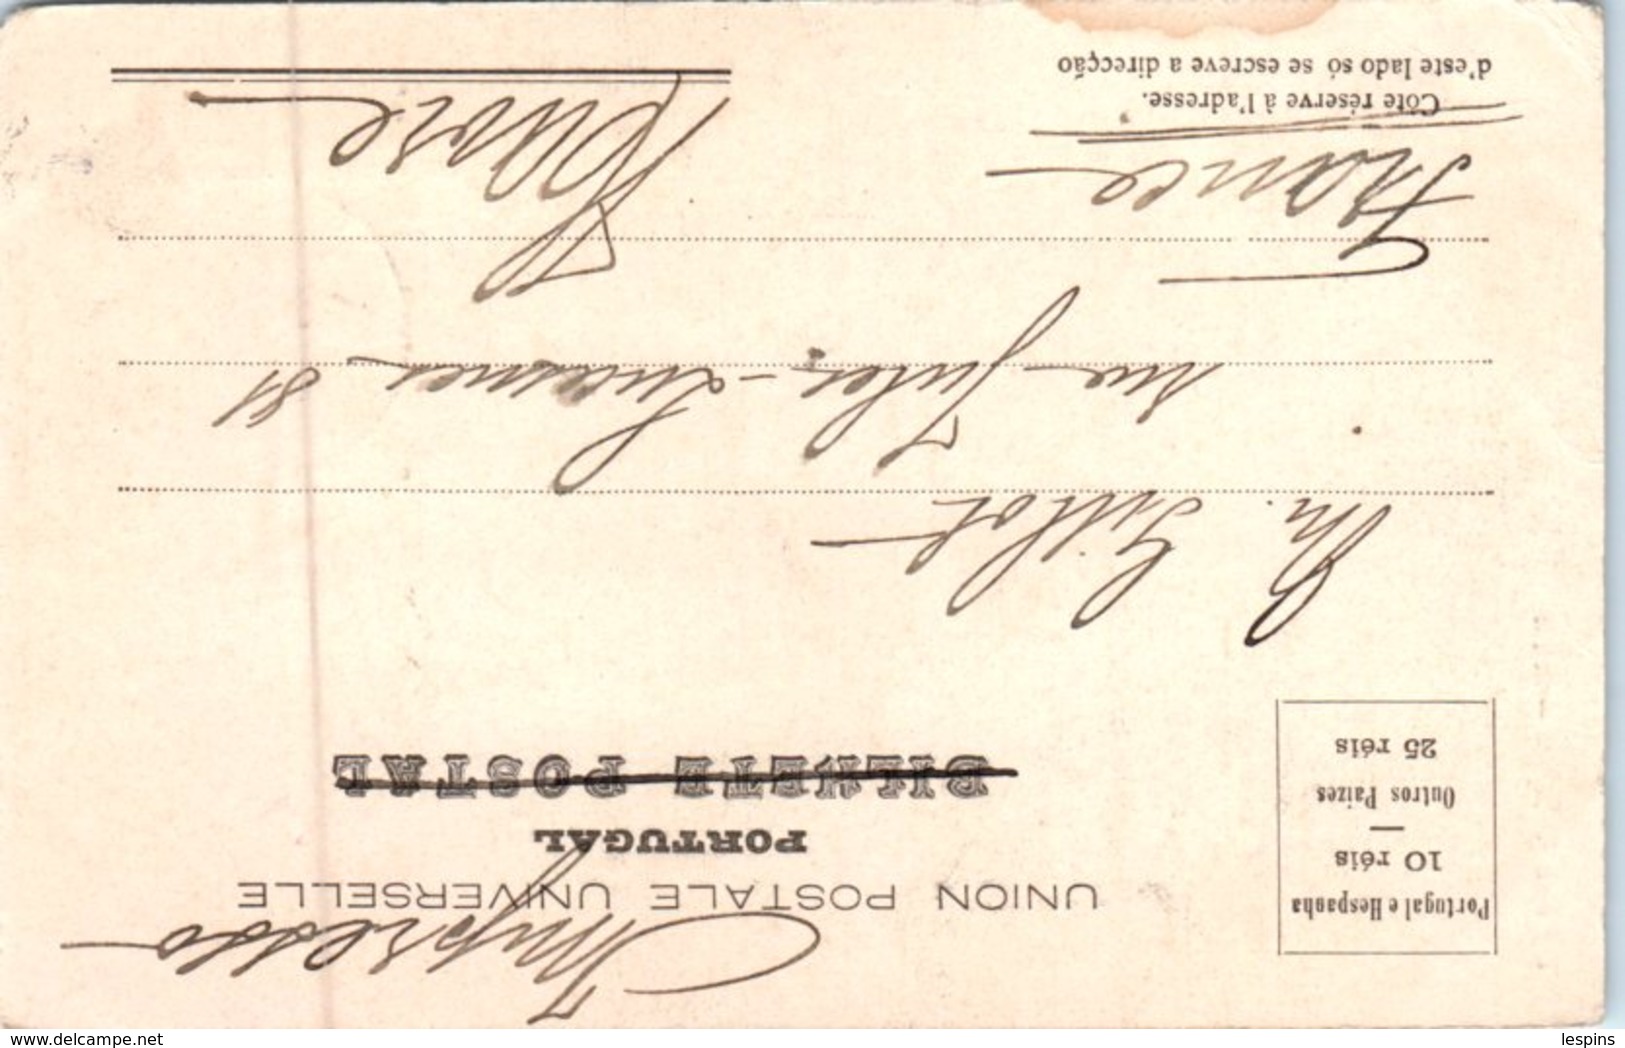 Impresso
UNION POSTALE UNIVERSELLE
PORTUGAL
BILHETE POSTAL
Portugal e Hespanha
10 réis
—
Outros Paizes
25 réis
M. Gillot
rue Jules-Lucennes 81
Havre
France
Côté réservé à l'adresse.
d'este lado só se escreve a direcção
delcampe.net
lespins